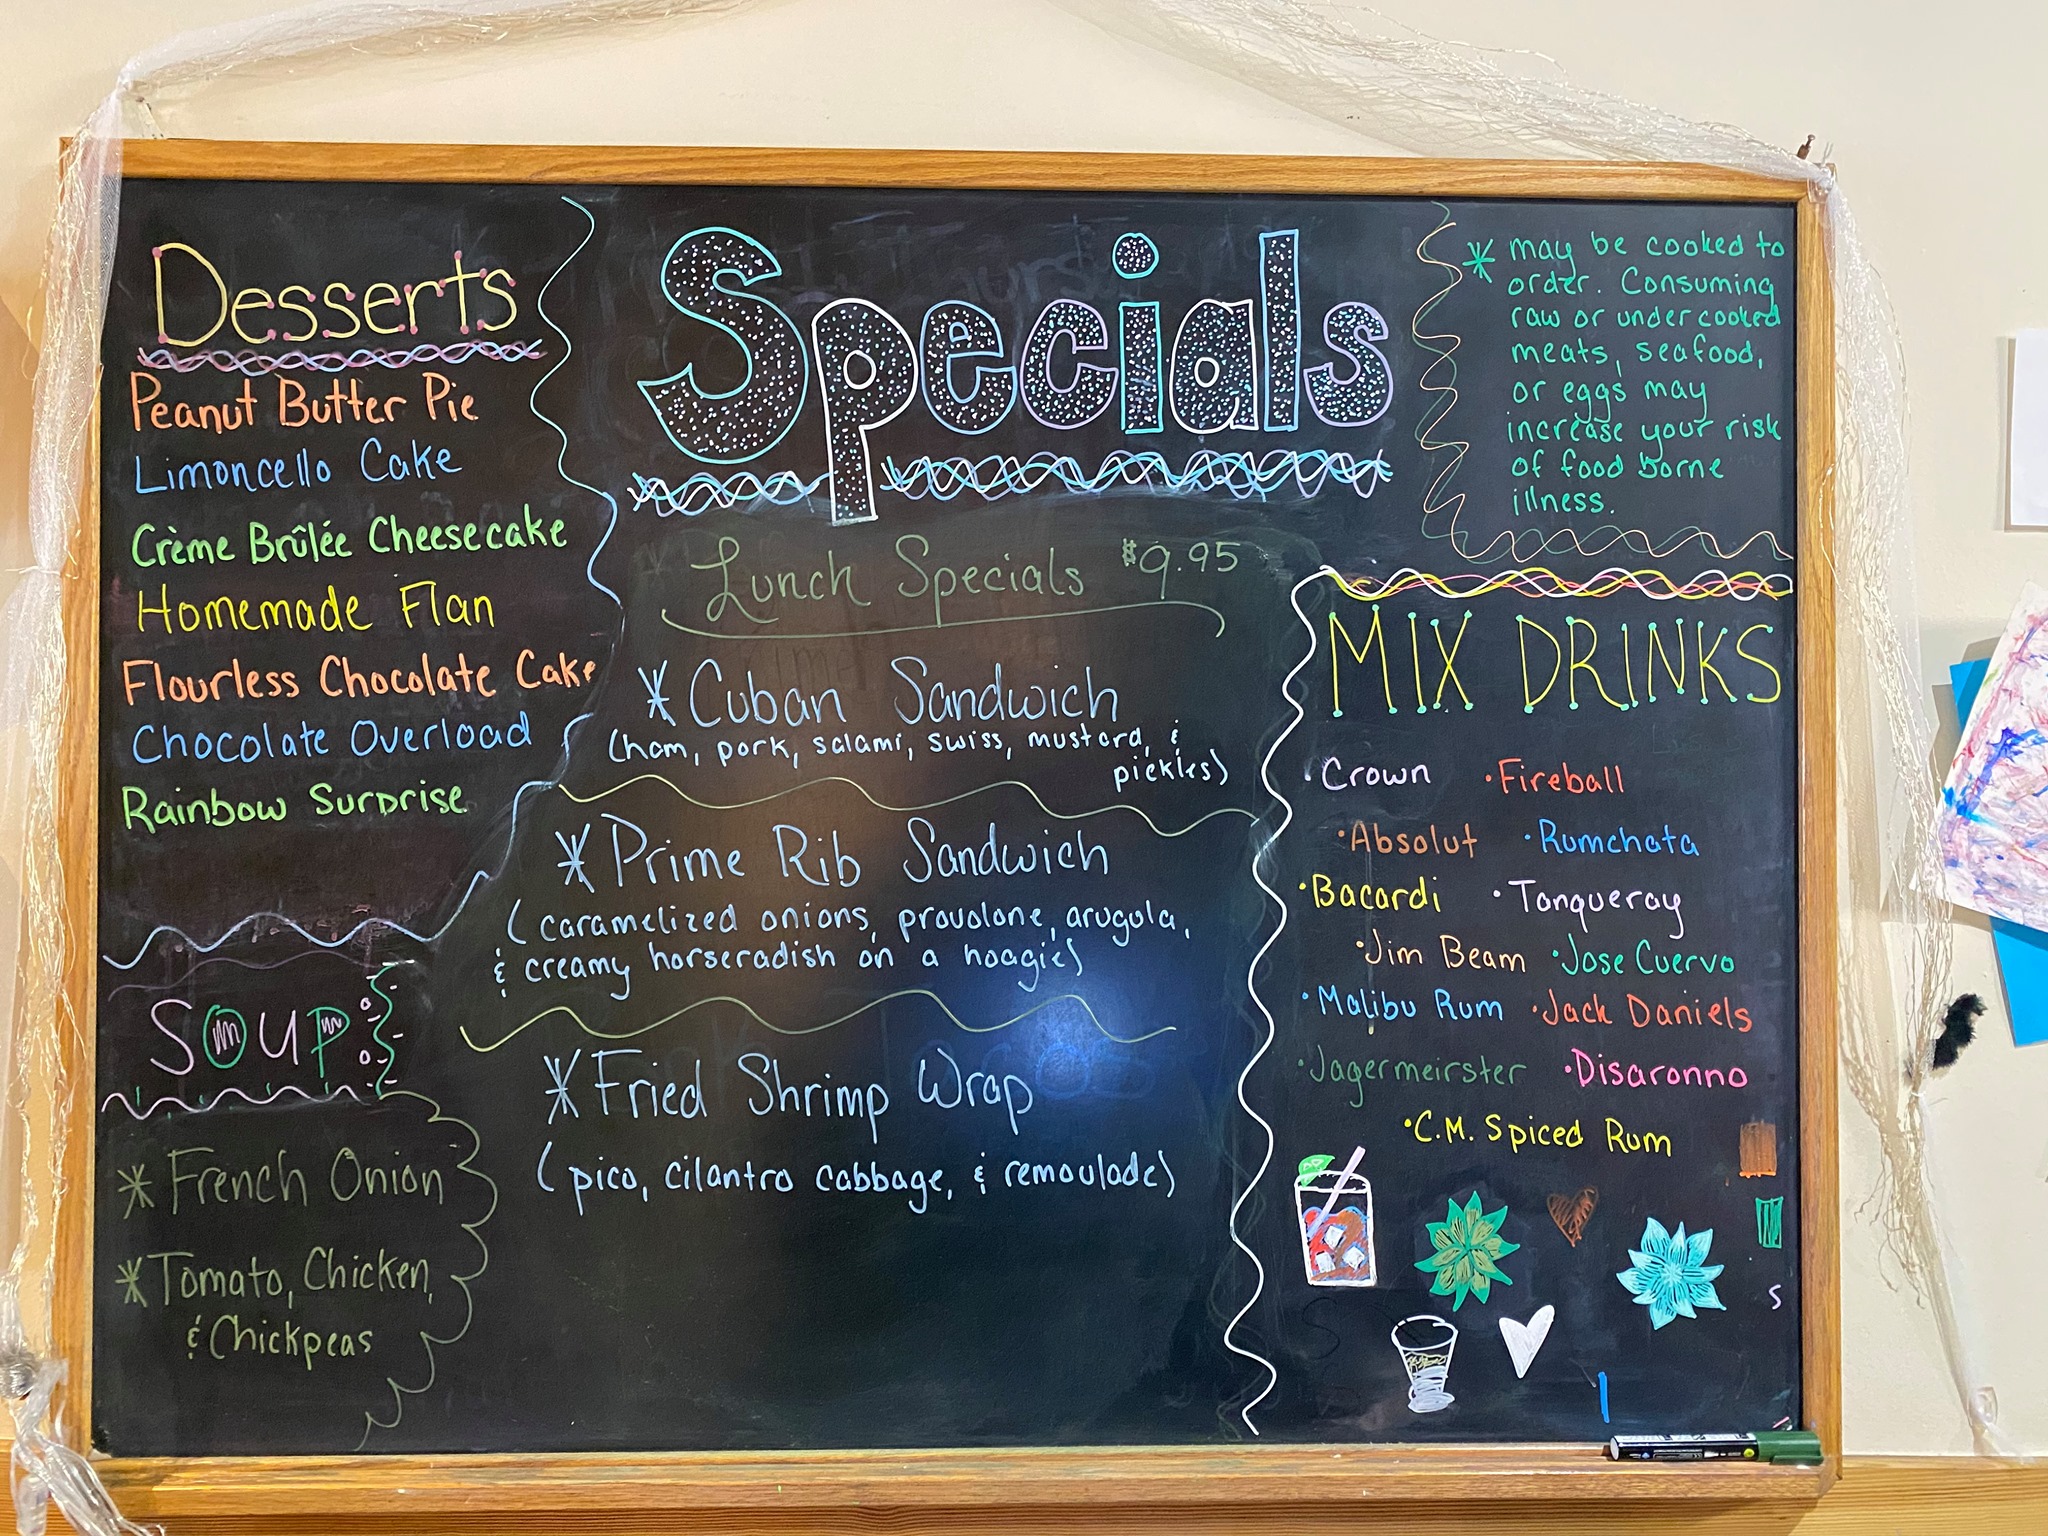 Desserts
Peanut Butter Pie
Limoncello Cake
Crème Brûlée Cheesecake
Homemade Flan
Flourless Chocolate Cake
Chocolate Overload
Rainbow Surprise
SOUP
* French Onion
* Tomato, Chicken,
& Chickpeas
Specials
Lunch Specials $9.95
* Cuban Sandwich
(ham, pork, salami, swiss, mustard, &
pickles)
* Prime Rib Sandwich
(caramelized onions, provolone, arugula,
& creamy horseradish on a hoagie)
* Fried Shrimp Wrap
(pico, cilantro cabbage, & remoulade)
* may be cooked to
order. Consuming
raw or undercooked
meats, seafood,
or eggs may
increase your risk
of food borne
illness.
MIX DRINKS
• Crown • Fireball
• Absolut • Rumchata
• Bacardi • Tanqueray
• Jim Beam • Jose Cuervo
• Malibu Rum • Jack Daniels
• Jagermeirster • Disaronno
• C.M. Spiced Rum
S